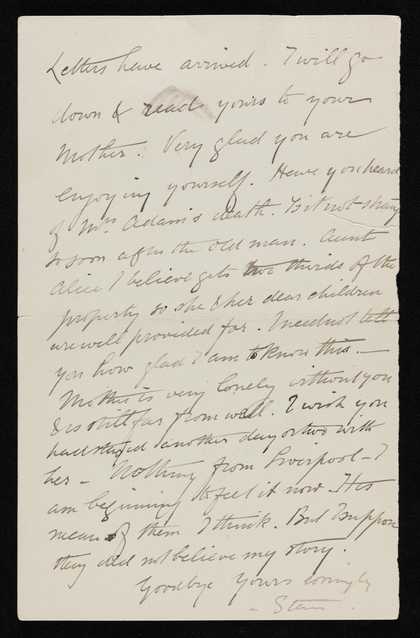 Letters have arrived. I will go
down & read yours to your
Mother. Very glad you are
enjoying yourself. Have you heard
of Mrs Adam's death. Is it not
so soon after the old man. Aunt
Alice I believe gets two thirds of the
property so she & her dear children
are well provided for. I need not tell
you how glad I am to know this. —
Mother is very lonely without you
& is still far from well. I wish you
had stayed another day or two with
her – Nothing from Liverpool – I
am beginning to feel it now. It is
mean of them I think. But I suppose
they did not believe my story.
Goodbye Yours lovingly